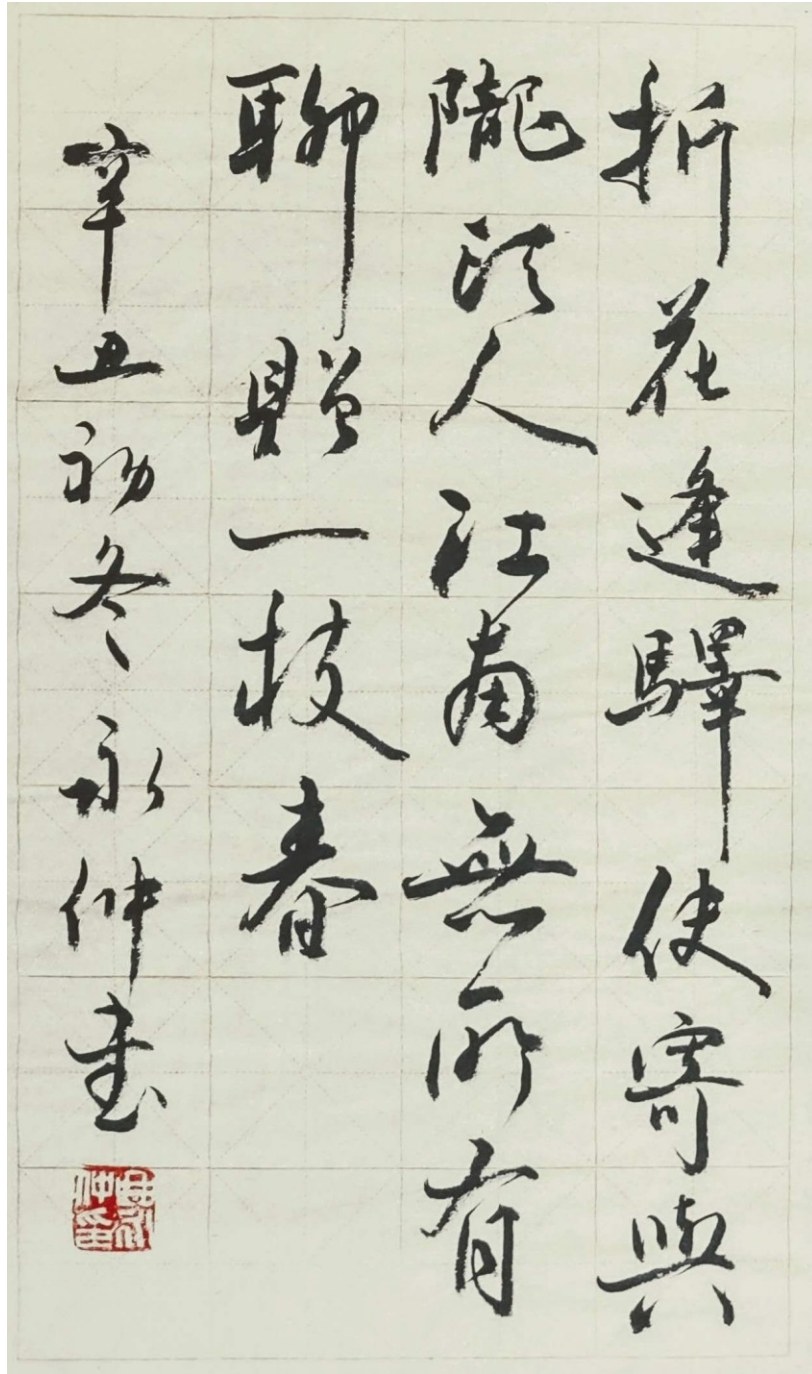 折花逢驛使寄與
隴頭人江南無所有
聊贈一枝春
辛丑初冬永仲書